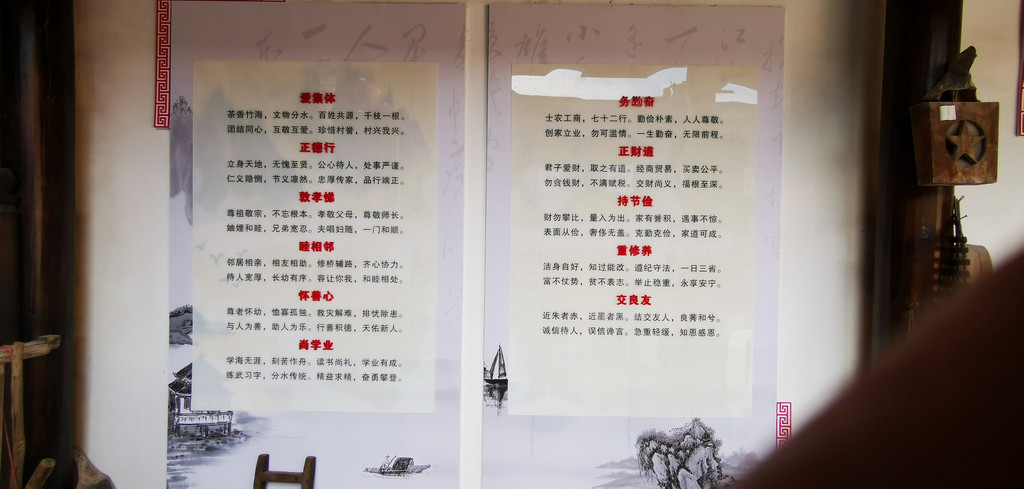 爱集体
茶香竹海，文物分水。百姓共源，千枝一根。
团结同心，互敬互爱。珍惜村誉，村兴我兴。
正德行
立身天地，无愧至贤。公心待人，处事严谨。
仁义隐恻，节义凛然。忠厚传家，品行端正。
敦孝悌
尊祖敬宗，不忘根本。孝敬父母，尊敬师长。
妯娌和睦，兄弟宽忍。夫唱妇随，一门和顺。
睦相邻
邻居相亲，相友相助。修桥辅路，齐心协力。
待人宽厚，长幼有序。容让你我，和睦相处。
怀善心
尊老怀幼，恤寡孤独。救灾解难，排忧除患。
与人为善，助人为乐。行善积德，天佑新人。
尚学业
学海无涯，刻苦作舟。读书尚礼，学业有成。
练武习字，分水传统。精益求精，奋勇攀登。
务勤奋
士农工商，七十二行。勤俭朴素，人人尊敬。
创家立业，勿可滥情。一生勤奋，无限前程。
正财道
君子爱财，取之有道。经商贸易，买卖公平。
勿贪钱财，不满赋税。交财尚义，福根至深。
持节俭
财勿攀比，量入为出。家有誉积，遇事不惊。
表面从俭，奢侈无盖。克勤克俭，家道可成。
重修养
洁身自好，知过能改。遵纪守法，一日三省。
富不仗势，贫不表志。举止稳重，永享安宁。
交良友
近朱者赤，近墨者黑。结交友人，良莠和兮。
诚信待人，误信谗言。急重轻缓，知恩感恩。